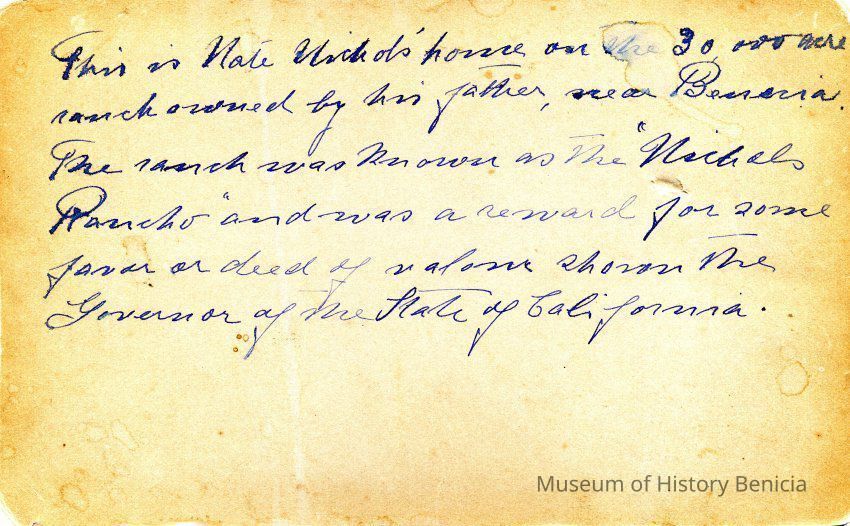 This is Nate Nichols' home on the 30,000 acre
ranch owned by his father, near Benicia.
The ranch was known as the "Nichols
Rancho" and was a reward for some
favor or deed of valour shown the
Governor of the State of California.
Museum of History Benicia